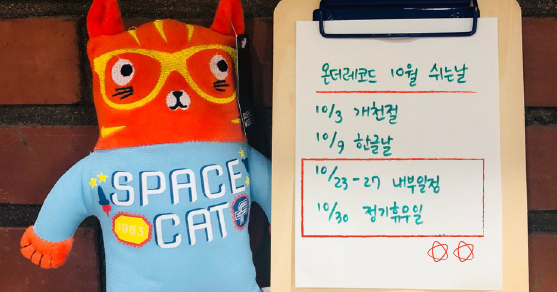 SPACE
CAT
1963
온더레코드 10월 쉬는날
10/3 개천절
10/9 한글날
10/23-27 내부일정
10/30 정기휴유일